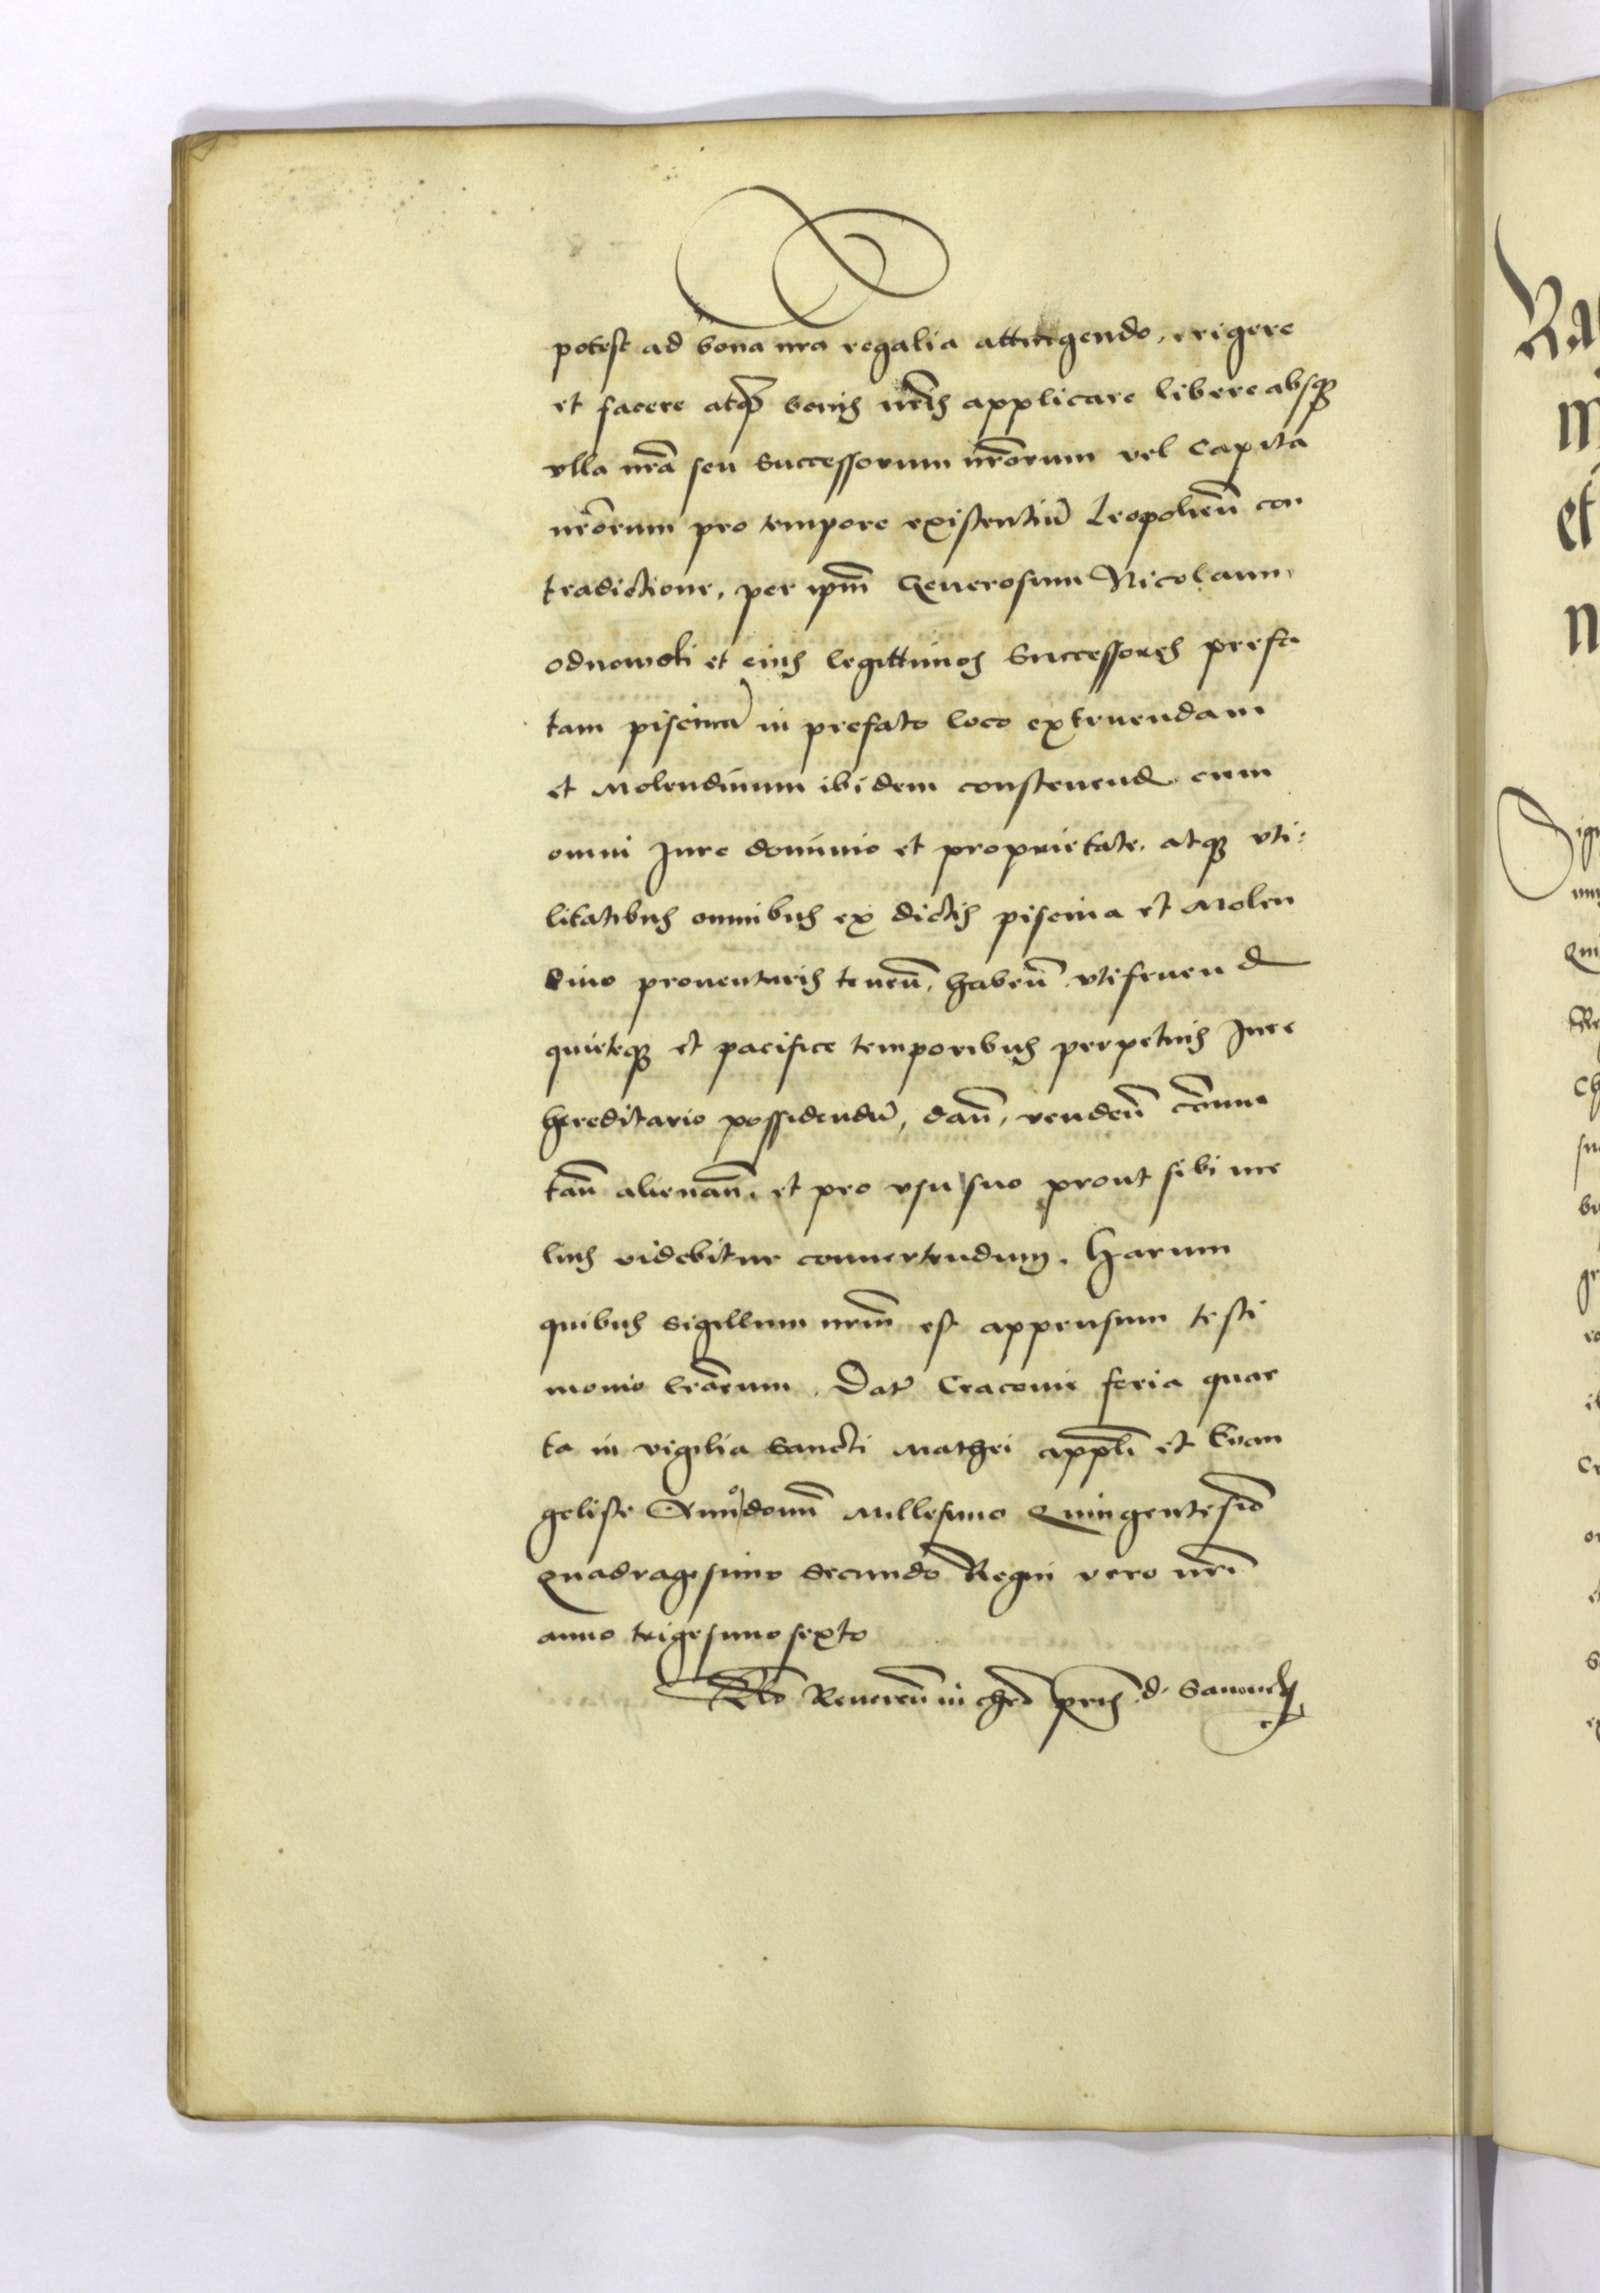 potest ad bona nra regalia attingendo, erigere
et facere atq₃ bonis nr̃is applicare libere absq₃
vlla nrã seu Successorum nrõrum vel Capita
nrõrum pro tempore existentiũ Leopolieñ con
tradictione, per ipm̃ Generosum Nicolaum
odnowski et eius legittimos Successores prefa
tam piscinã in prefato loco extruendam
et Molendinum ibidem construend cum
omni Jure dominio et proprietate, atq₃ vti:
litatibus omnibus ex dictis piscina et Molen
dino prouenturis teneñ, habeñ vtifruend
quieteq₃ et pacifice temporibus perpetuis Jure
hereditario possidendũ, dañ, vendeñ cõmu
tañ alienañ, et pro vsu suo prout sibi me
lius videbitur conuertendum. Harum
quibus Sigillum nrm̃ est appensum testi
monio lrãrum. Dat̃ Cracouie feria quar
ta in vigilia Sancti Mathei appl̃i et Euan
geliste Anño domĩ Millesimo Quingentesiõ
Quadragesimo Secundo Regni vero nrĩ
anno trigesimo sexto
Rlo Reuereñ in chrõ pr̃is d. Samuel